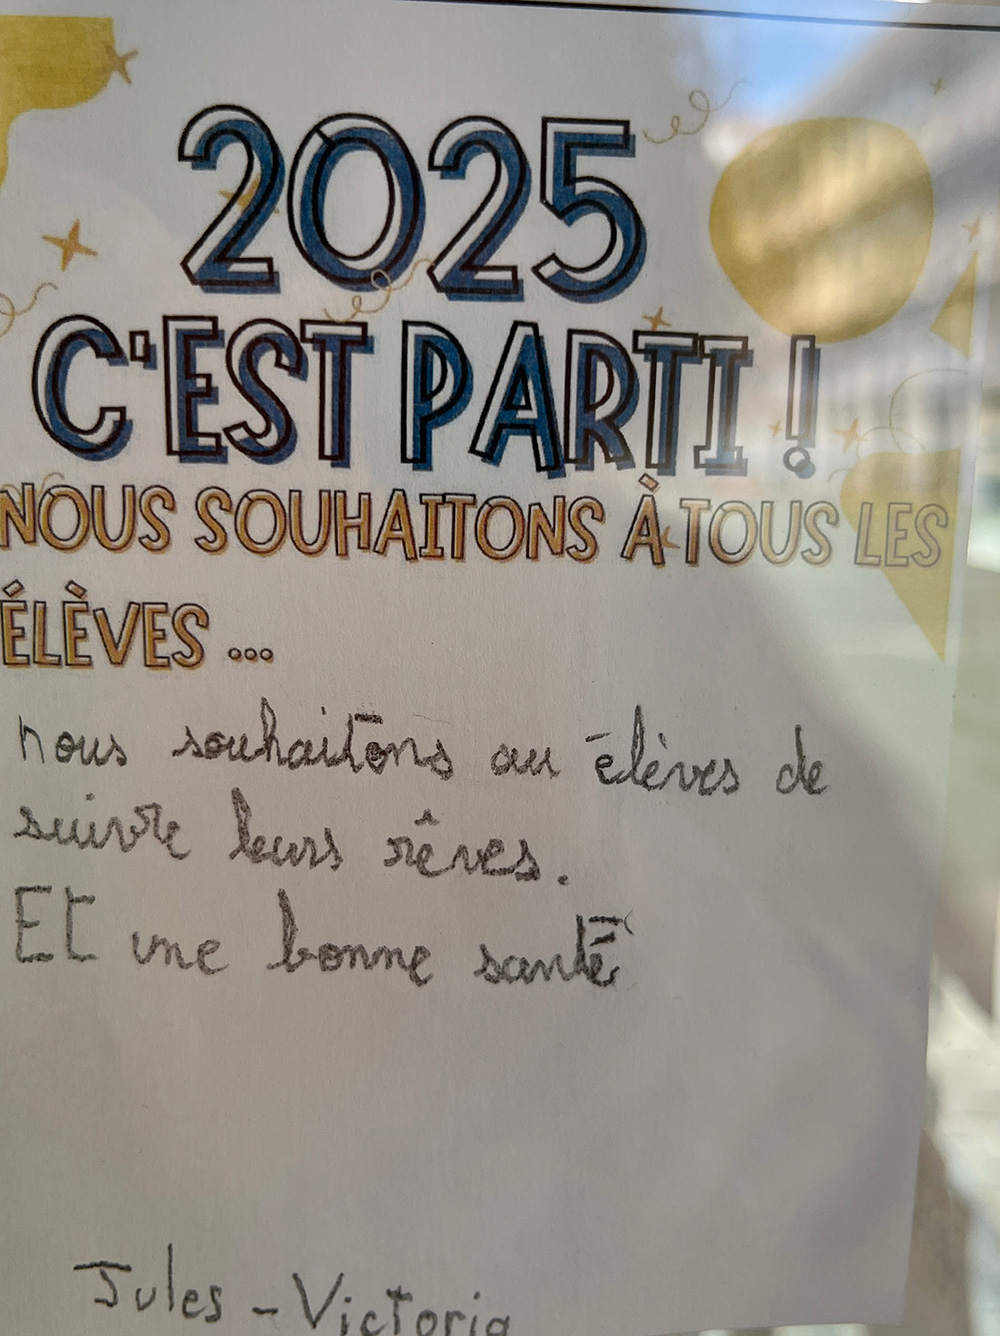 2025
C'EST PARTI !
NOUS SOUHAITONS À TOUS LES
ÉLÈVES ...
nous souhaitons au élèves de
suivre leurs rêves.
Et une bonne santé
Jules - Victoria